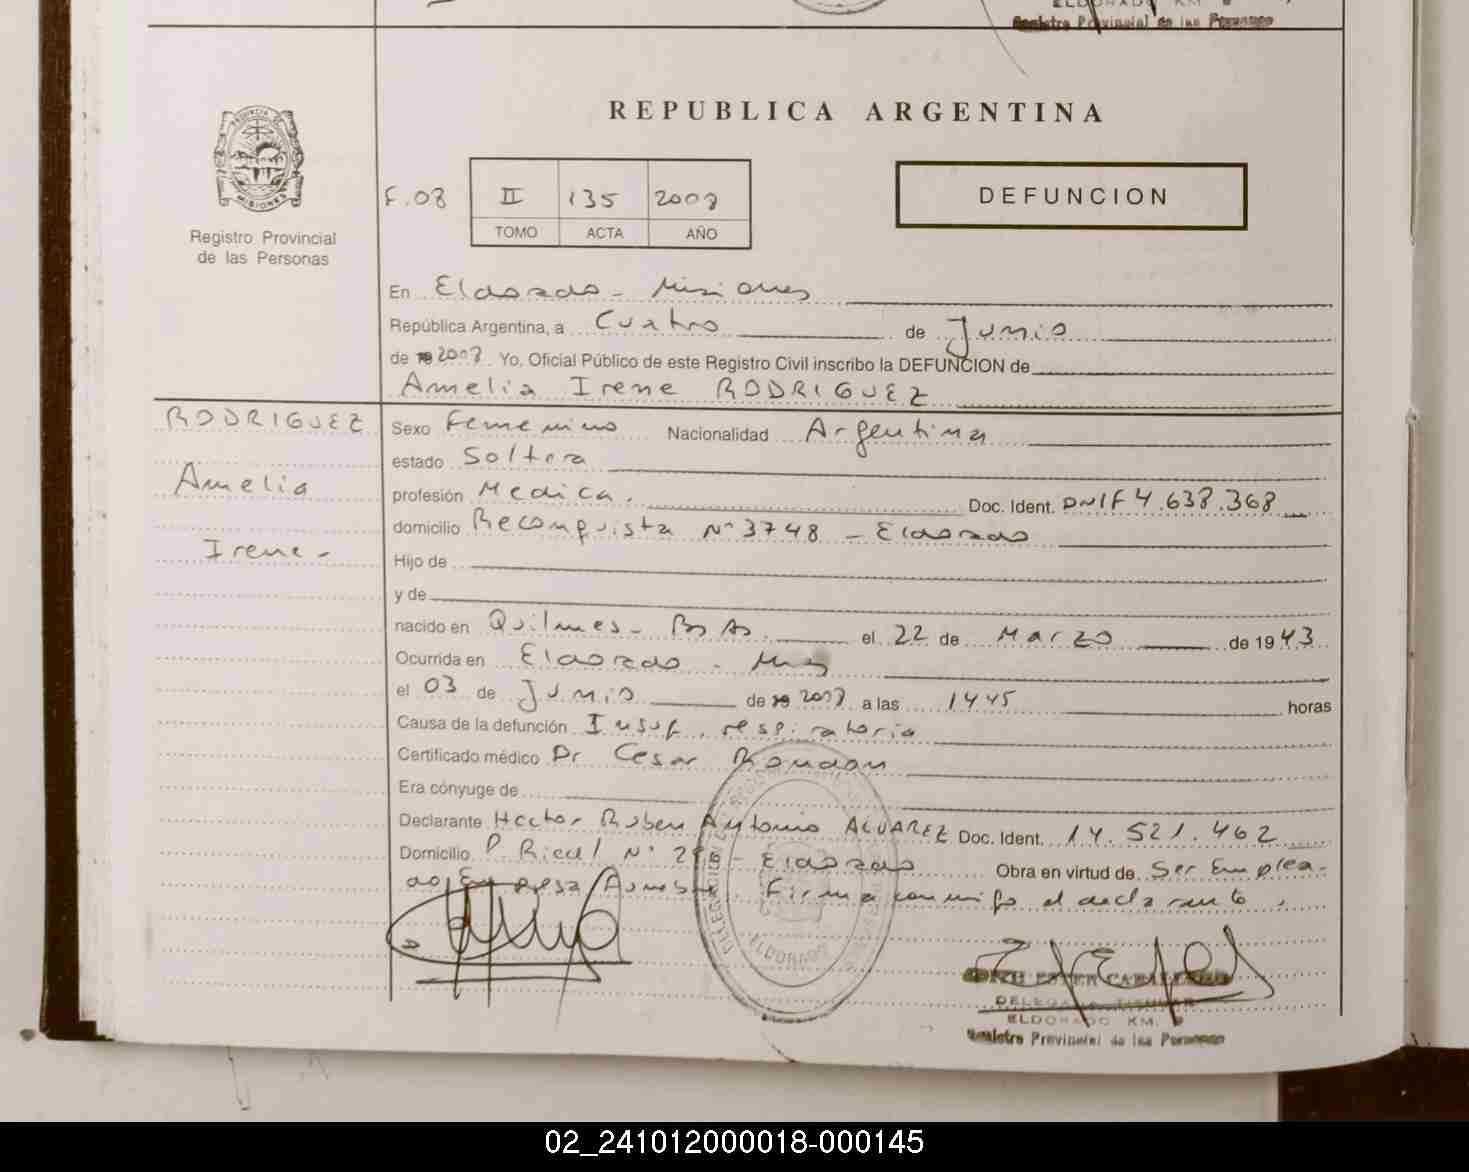 ELDORADO KM. 9
Registro Provincial de las Personas
REPUBLICA ARGENTINA
PROVINCIA DE
MISIONES
Registro Provincial
de las Personas
F.08
II 135 2007
TOMO ACTA AÑO
DEFUNCION
En Eldorado - Misiones
República Argentina, a Cuatro de Junio
de 2007 Yo, Oficial Público de este Registro Civil inscribo la DEFUNCION de
Amelia Irene RODRIGUEZ
RODRIGUEZ
Amelia
Irene -
Sexo Femenino Nacionalidad Argentina
estado Soltera
profesión Medica. Doc. Ident. DNIF 4.638.368
domicilio Reconquista N° 3748 - Eldorado
Hijo de
y de
nacido en Quilmes - Bs As. el 22 de Marzo de 1943
Ocurrida en Eldorado - Mnes
el 03 de Junio de 2007 a las 1445 horas
Causa de la defunción Insuf. respiratoria
Certificado médico Dr Cesar Rondan
Era cónyuge de
Declarante Hector Ruben Antonio ALVAREZ Doc. Ident. 14.521.462
Domicilio P. Rical N° - Eldorado Obra en virtud de Ser Emplea-
do Empresa Funebre. Firma conmigo el declarante.
DELEGACION
ELDORADO
ESTER CABALLERO
DELEGADA TITULAR
ELDORADO KM. 9
Registro Provincial de las Personas
02_241012000018-000145